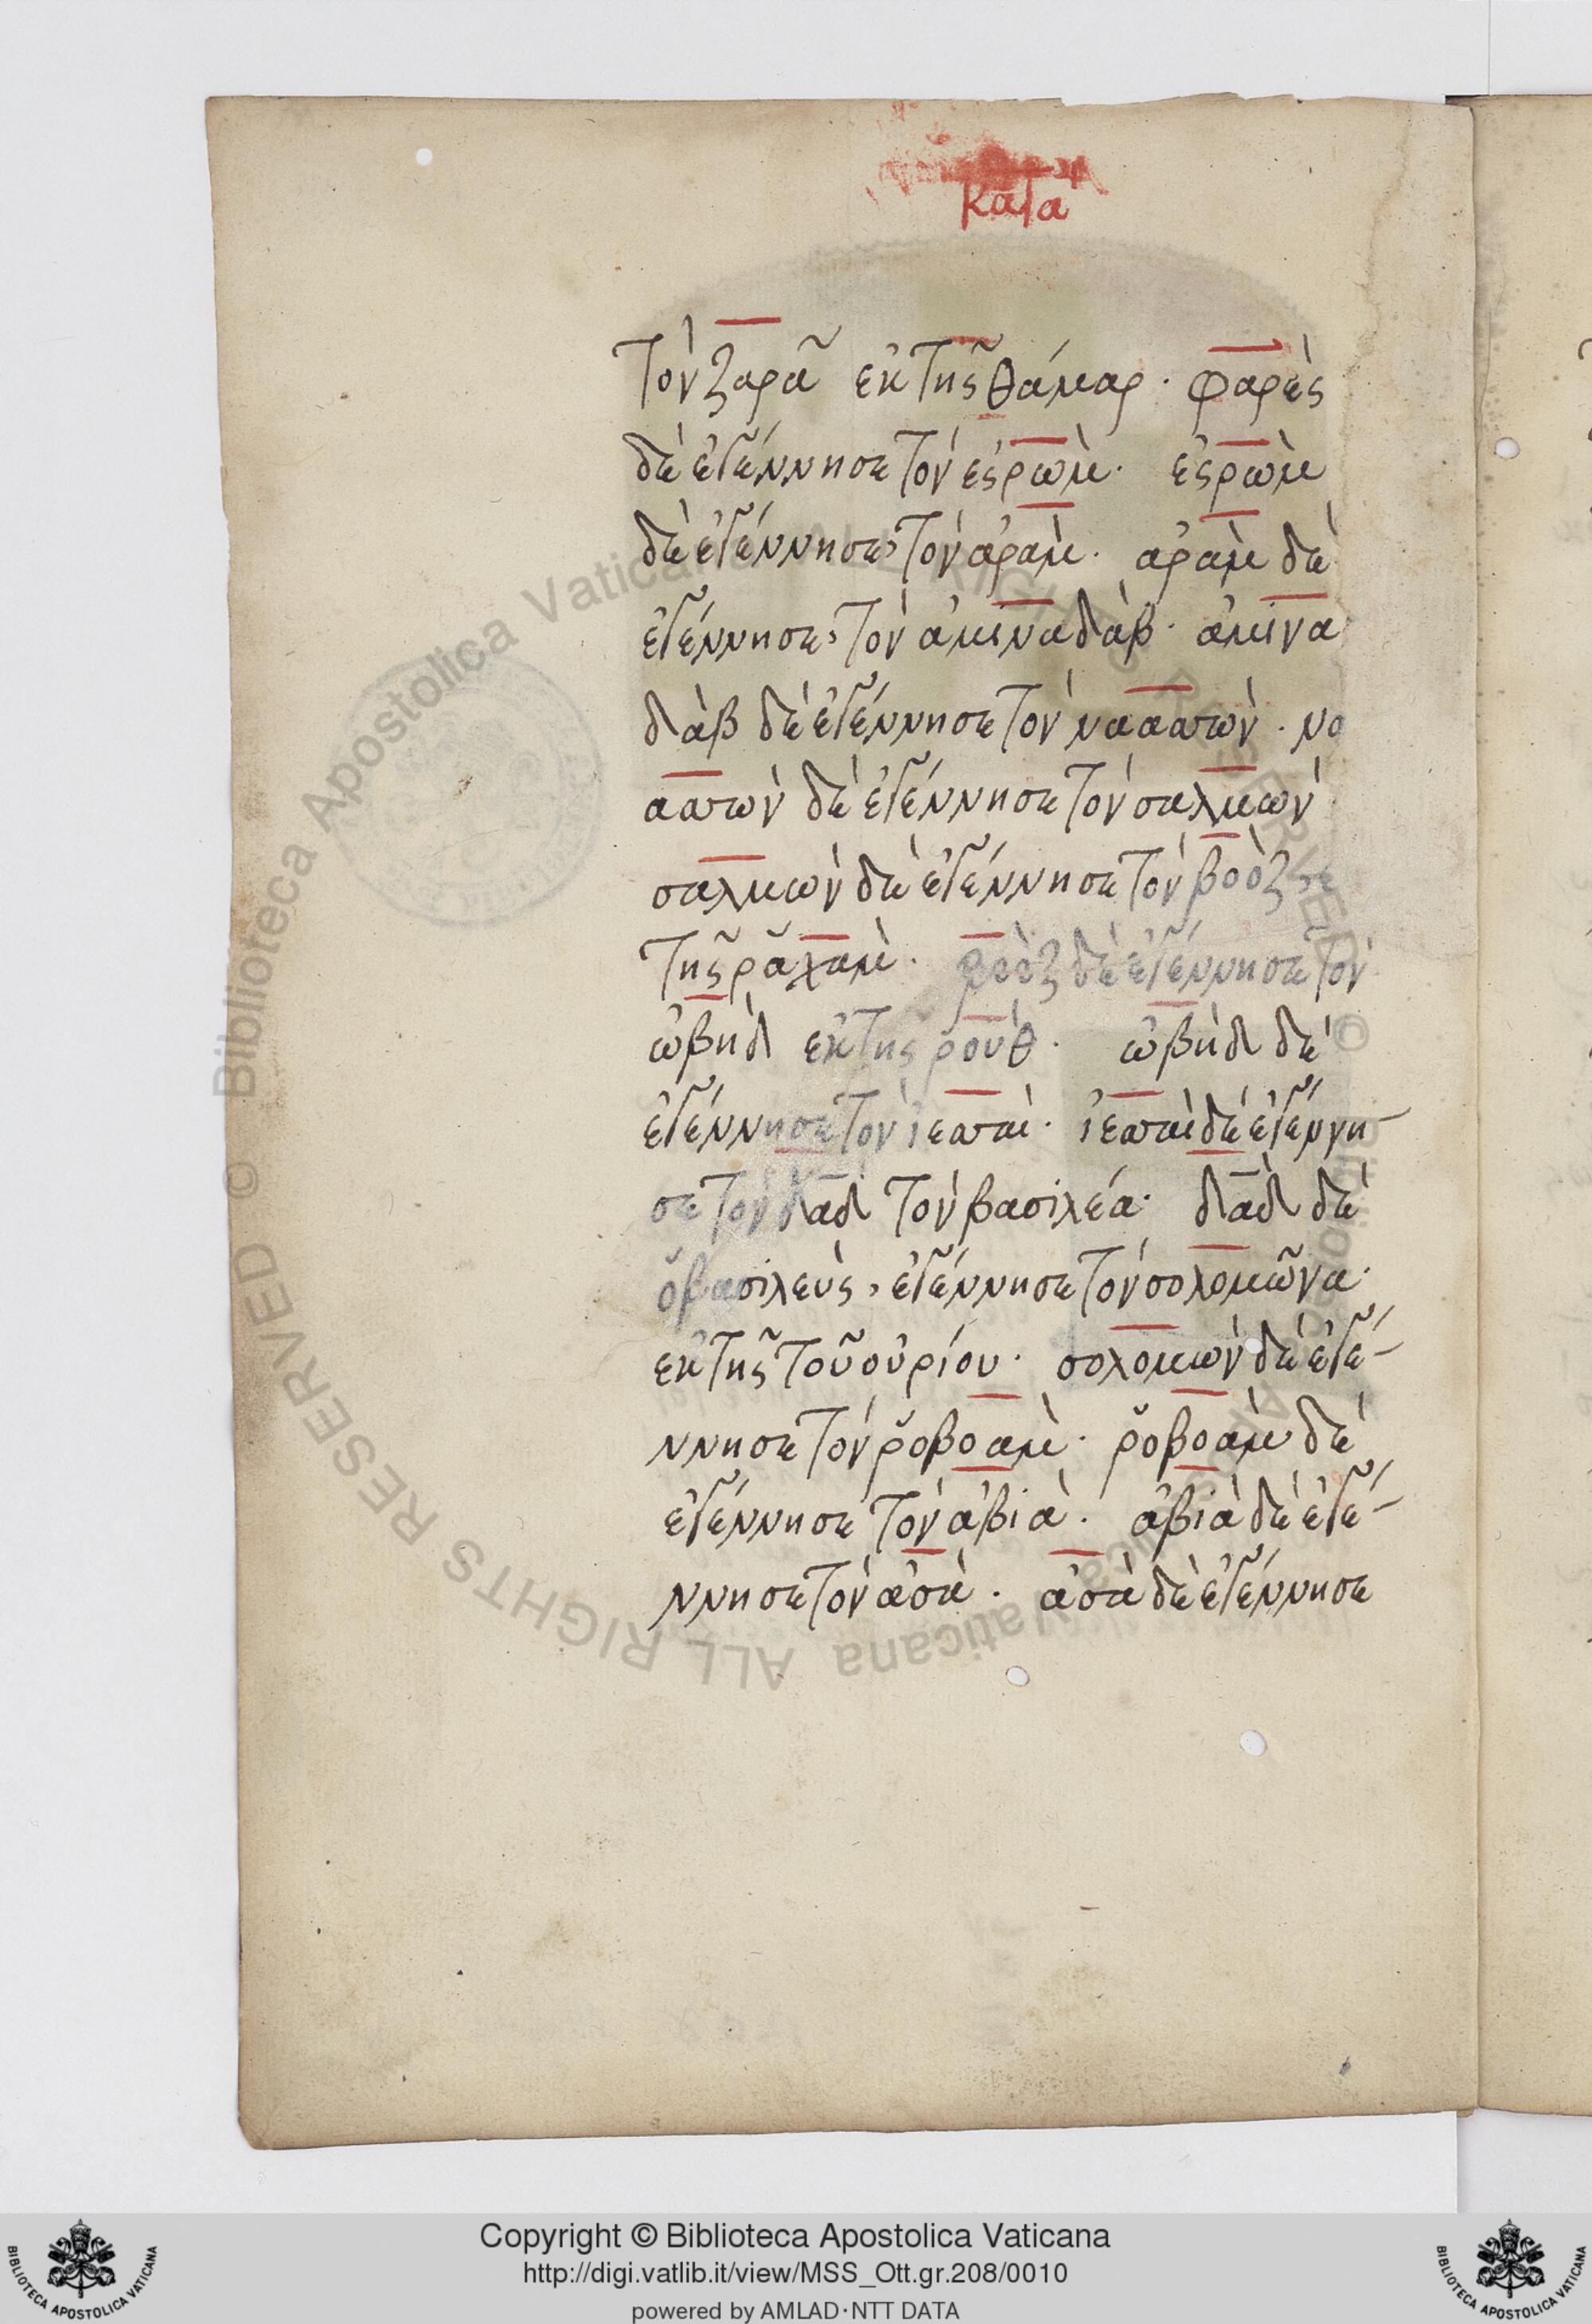 κατα
τὸν ζαρᾶ ἐκ τῆς θάμαρ· φαρὲς
δὲ ἐγέννησε τὸν ἐςρώμ· ἐςρὼμ
δὲ ἐγέννησε, τὸν ἀράμ· ἀρὰμ δὲ
ἐγέννησε, τὸν ἀμιναδάβ· ἀμινα
δὰβ δὲ ἐγέννησε τὸν ναασσών· να
ασσὼν δὲ ἐγέννησε τὸν σαλμών
σαλμὼν δὲ ἐγέννησε τὸν βοὸζ ἐκ
τῆς ῥαχάμ· βοὸζ δὲ ἐγέννησε τὸν
ὠβὴδ ἐκ τῆς ῥούθ· ὠβὴδ δὲ
ἐγέννησε τὸν ἰεσσαί· ἰεσσαὶ δὲ ἐγέννη
σε τὸν δᾱδ τὸν βασιλέα· δᾱδ δὲ
ὁ βασιλεὺς, ἐγέννησε τὸν σολομῶνα·
ἐκ τῆς τοῦ οὐρίου· σολομὼν δὲ ἐγέ-
ννησε τὸν ῥοβοάμ· ῥοβοὰμ δὲ
ἐγέννησε τὸν ἀβιά· ἀβιὰ δὲ ἐγέ-
ννησε τὸν ἀσά· ἀσὰ δὲ ἐγέννησε
© Biblioteca Apostolica Vaticana ALL RIGHTS RESERVED
© Biblioteca Apostolica Vaticana ALL RIGHTS RESERVED
Copyright © Biblioteca Apostolica Vaticana
http://digi.vatlib.it/view/MSS_Ott.gr.208/0010
powered by AMLAD·NTT DATA
BIBLIOTECA APOSTOLICA VATICANA
BIBLIOTECA APOSTOLICA VATICANA